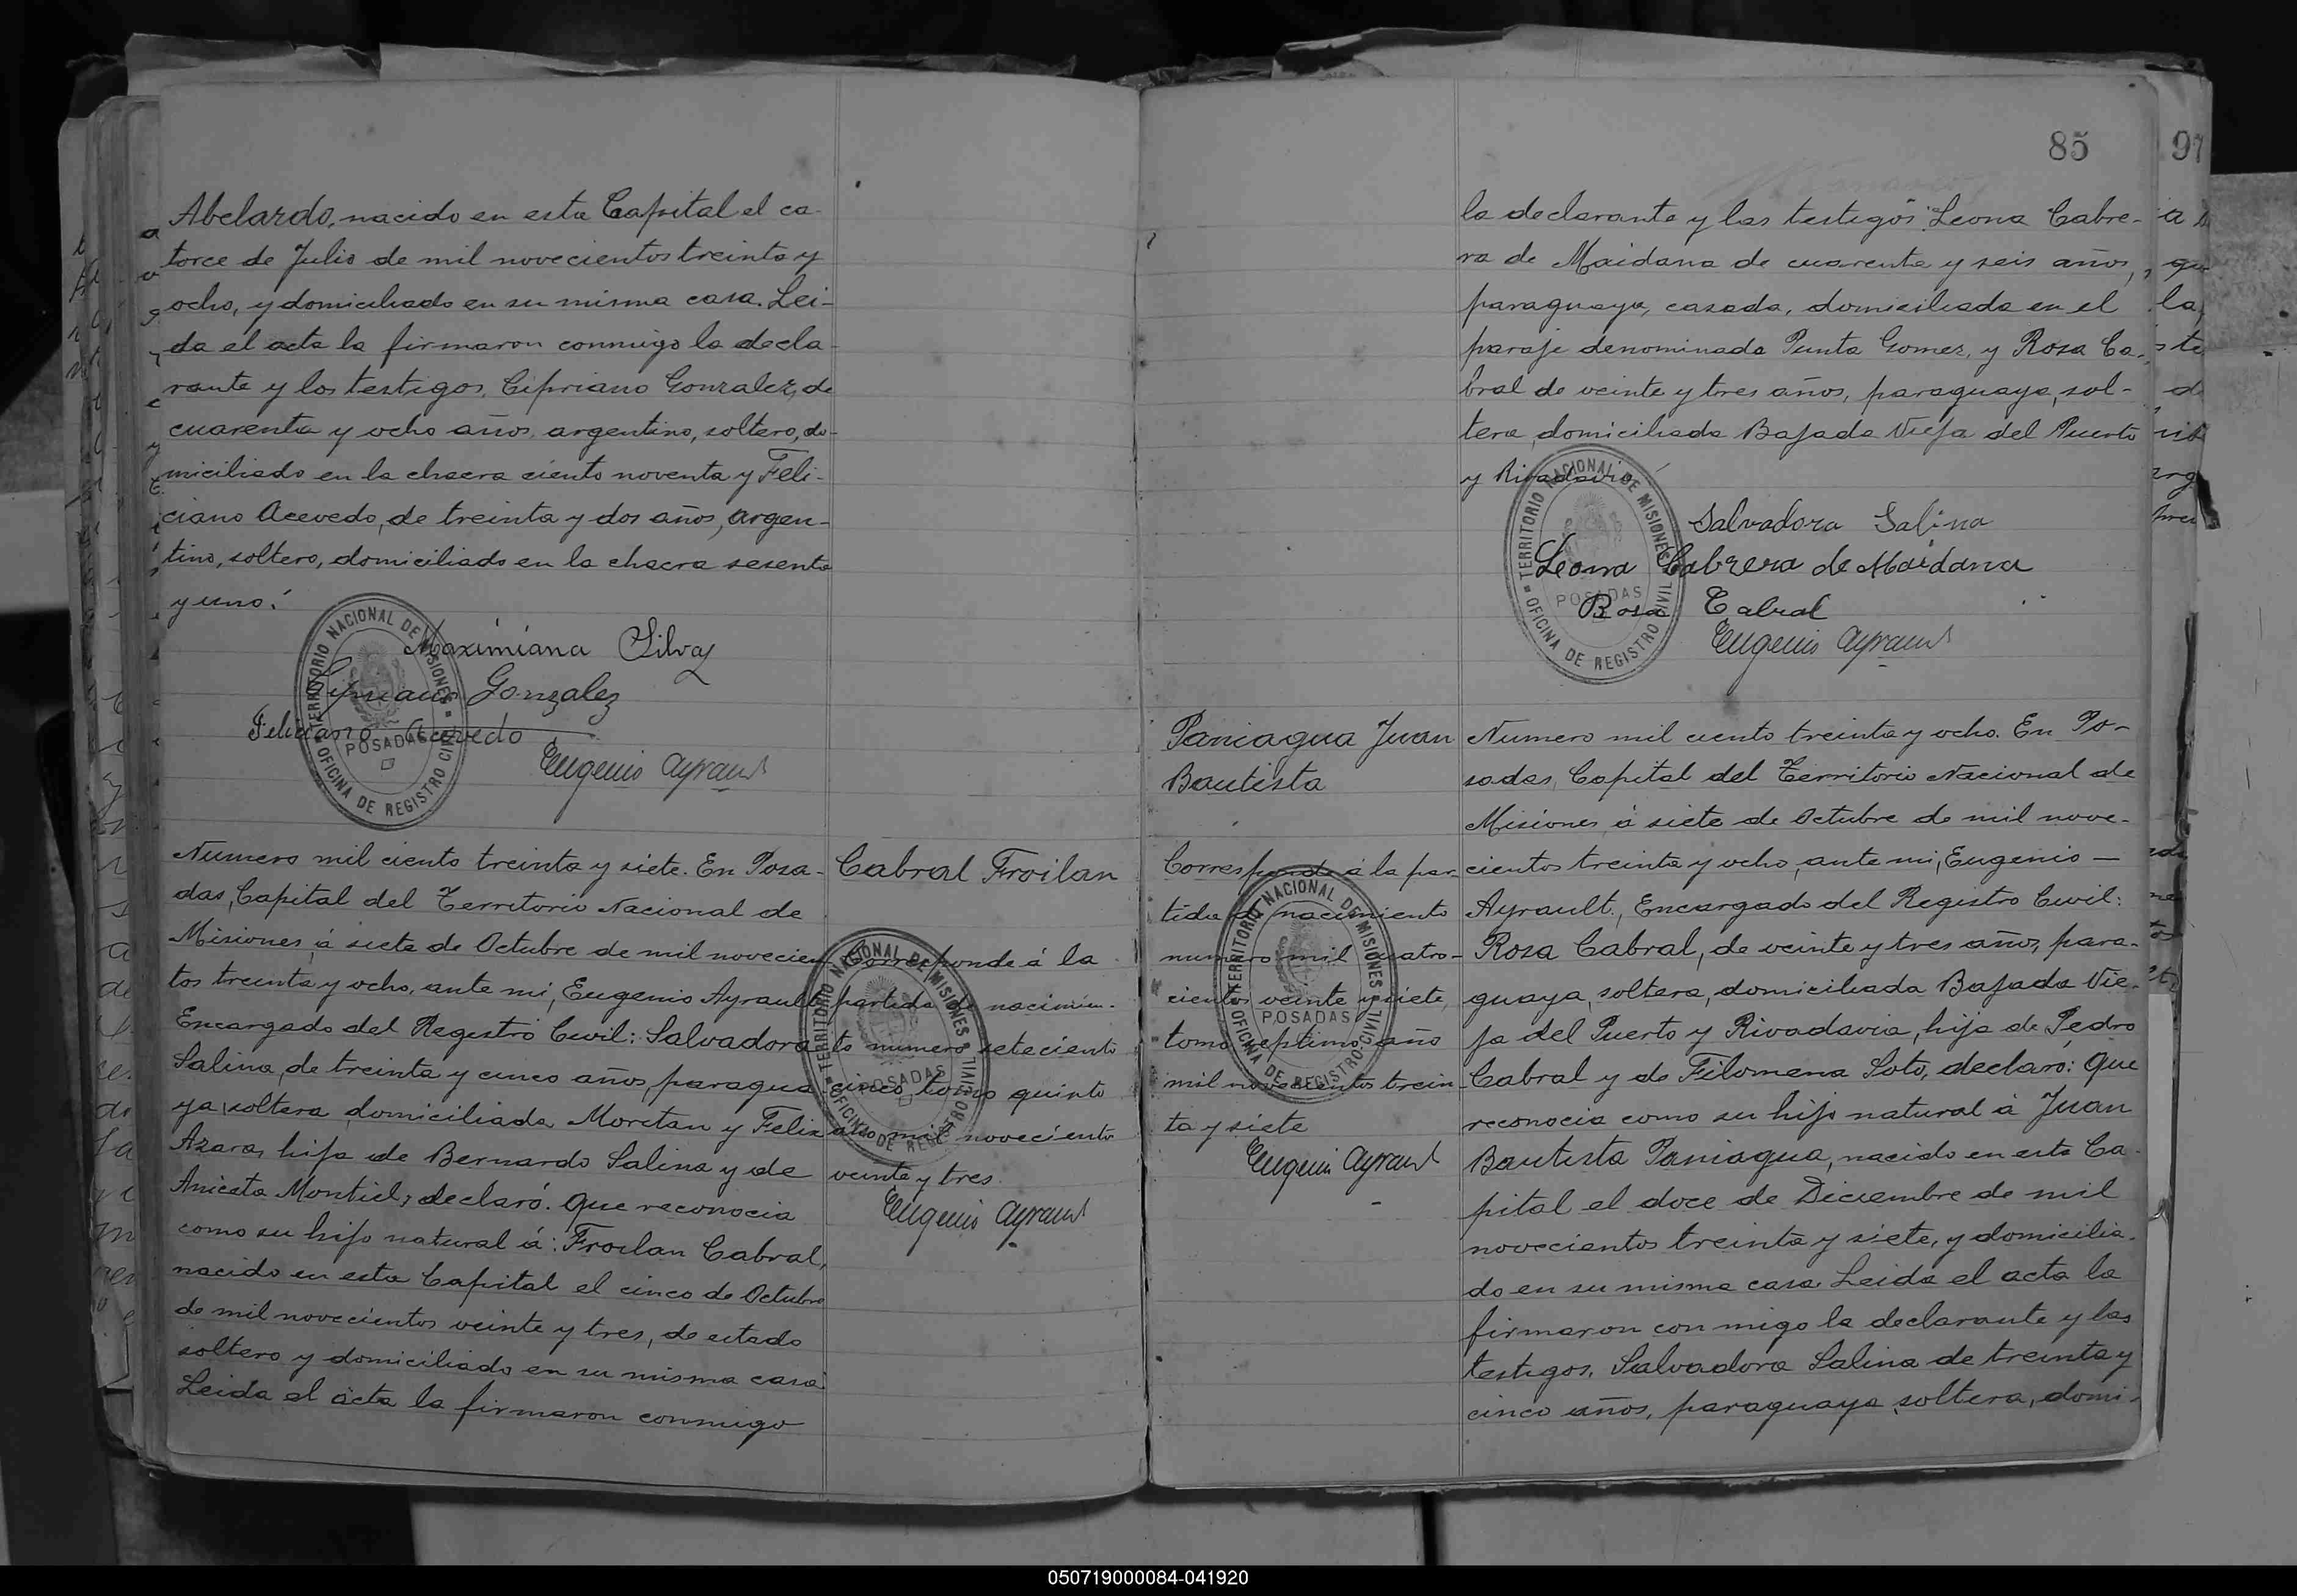 Abelardo, nacido en esta Capital el ca-
torce de Julio de mil novecientos treinta y
ocho, y domiciliado en su misma casa. Lei-
da el acta la firmaron conmigo la decla-
rante y los testigos, Cipriano Gonzalez, de
cuarenta y ocho años, argentino, soltero, do-
miciliado en la chacra ciento noventa y Feli-
ciano Acevedo, de treinta y dos años, argen-
tino, soltero, domiciliado en la chacra sesenta
y uno.
Maximiana Silva
Cipriano Gonzalez
Feliciano Acevedo
Eugenio Ayrault
TERRITORIO NACIONAL DE MISIONES
POSADAS
OFICINA DE REGISTRO CIVIL
Numero mil ciento treinta y siete. En Posa-
das, Capital del Territorio Nacional de
Misiones, á siete de Octubre de mil novecien
tos treinta y ocho, ante mi, Eugenio Ayrault
Encargado del Registro Civil: Salvadora
Salina, de treinta y cinco años, paragua-
ya, soltera, domiciliada Moretan y Felix
Azara, hija de Bernardo Salina y de
Aniceta Montiel, declaró: que reconocia
como su hijo natural á: Froilan Cabral,
nacido en esta Capital el cinco de Octubre
de mil novecientos veinte y tres, de estado
soltero y domiciliado en su misma casa.
Leida el acta la firmaron conmigo
Cabral Froilan
Corresponde á la
partida de nacimien-
to numero setecientos
cinco tomo quinto
año mil novecientos
veinte y tres.
Eugenio Ayrault
TERRITORIO NACIONAL DE MISIONES
POSADAS
OFICINA DE REGISTRO CIVIL
85
97
la declarante y las testigos: Leona Cabre-
ra de Maidana de cuarenta y seis años,
paraguaya, casada, domiciliada en el
paraje denominado Punta Gomez, y Rosa Ca-
bral de veinte y tres años, paraguaya, sol-
tera, domiciliada Bajada Vieja del Puerto
y Rivadavia
Salvadora Salina
Leona Cabrera de Maidana
Rosa Cabral
Eugenio Ayrault
TERRITORIO NACIONAL DE MISIONES
POSADAS
OFICINA DE REGISTRO CIVIL
Paniagua Juan
Bautista
Corresponde á la par-
tida de nacimiento
numero mil cuatro-
cientos veinte y siete,
tomo septimo año
mil novecientos trein-
ta y siete
Eugenio Ayrault
TERRITORIO NACIONAL DE MISIONES
POSADAS
OFICINA DE REGISTRO CIVIL
Numero mil ciento treinta y ocho. En Po-
sadas, Capital del Territorio Nacional de
Misiones á siete de Octubre de mil nove-
cientos treinta y ocho, ante mi, Eugenio
Ayrault, Encargado del Registro Civil:
Rosa Cabral, de veinte y tres años, para-
guaya, soltera, domiciliada Bajada Vie-
ja del Puerto y Rivadavia, hija de Pedro
Cabral y de Filomena Soto, declaró: que
reconocia como su hijo natural á Juan
Bautista Paniagua, nacido en esta Ca-
pital el doce de Diciembre de mil
novecientos treinta y siete, y domicilia-
do en su misma casa. Leida el acta la
firmaron con migo la declarante y las
testigos, Salvadora Salina de treinta y
cinco años, paraguaya, soltera, domi-
050719000084-041920